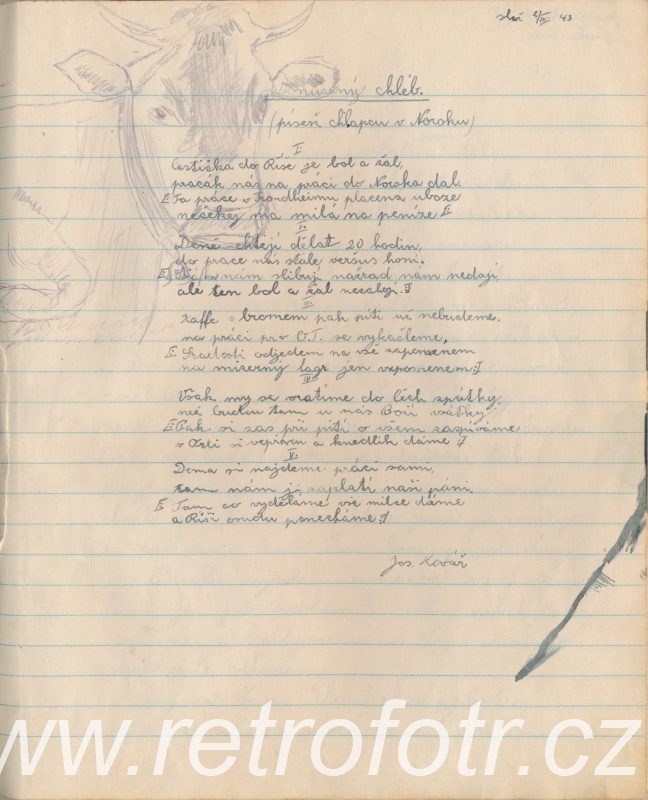 slož. 2/IV 43
chléb.
(píseň chlapcu v Norsku)
I.
Cestička do Říše je bol a žal,
pracák nás na práci do Norska dal.
|: Ta práce v Trondheimu placena uboze
nečekej má milá na peníze :|
II.
Denně chtějí dělat 20 hodin,
do práce nás stále honí.
|: nám slibují nám nedají
ale ten bol a žal nezahojí :|
III.
Kaffe s bromem pak píti už nebudeme,
na práci pro O.T. se vykašleme,
|: Radostí odjedem na vše zapomenem
na miserný lagr jen vzpomenem :|
IV.
Však my se vrátíme do Čech zpátky,
než budou tam u nás Boží svátky
|: Pak si zas při pití o všem zazpíváme
v Ústí si vepřovou a knedlík dáme :|
V.
Doma si najdeme práci sami,
tam nám ji zaplatí naši páni.
|: Tam co vyděláme vše milce dáme
a Říši osudu ponecháme :|
Jos. Kovář
www.retrofotr.cz